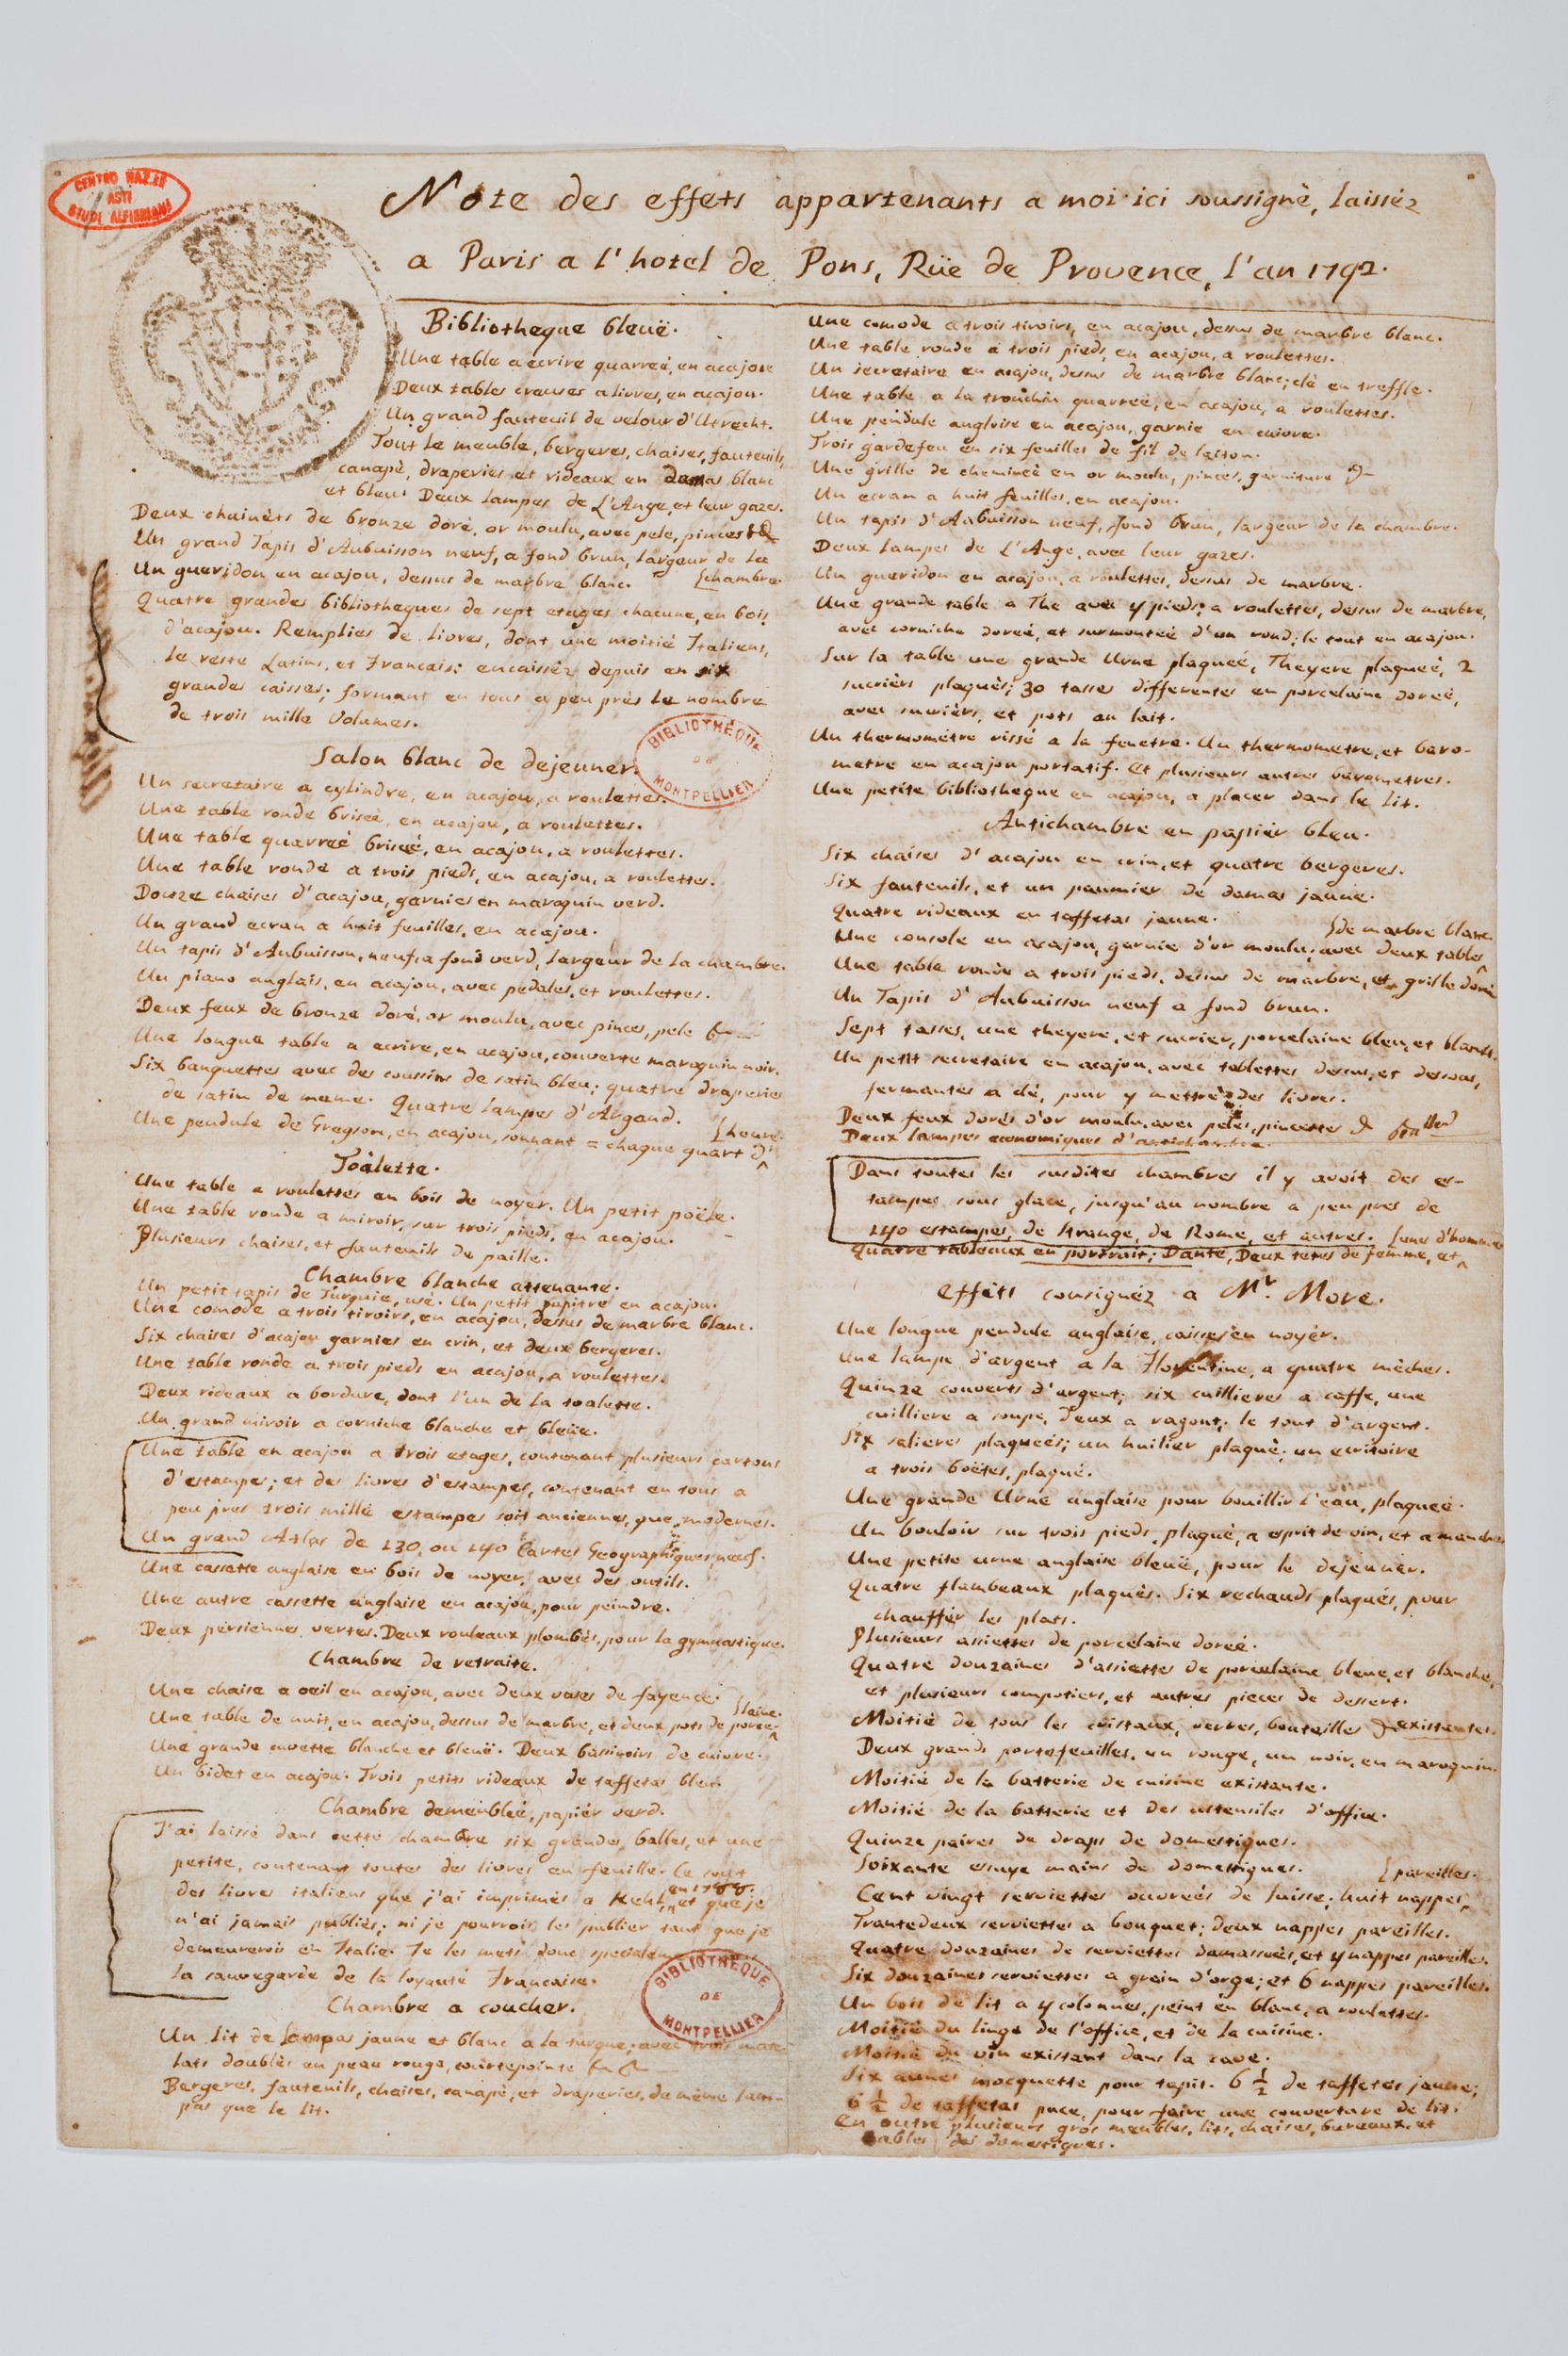 CENTRO NAZ.LE
ASTI
STUDI ALFIERIANI
Note des effets appartenants a moi ici soussigné, laissés
a Paris a l'hotel de Pons, Rüe de Provence, l'an 1792.
Bibliotheque bleuë.
Une table a ecrire quarreé, en acajou
Deux tables creuses a livres, en acajou.
Un grand fauteuil de velour d'Utrecht.
Tout le meuble, bergeres, chaises, fauteuils,
canapè, draperies et rideaux en damas blanc
et bleu. Deux lampes de L'Ange, et leur gazes.
Deux chainèts de bronze doré, or moulu, avec pele, pinces
Un grand Tapis d'Aubuisson neuf, a fond brun, largeur de la
Un gueridon en acajou, dessus de marbre blanc. [chambre.
Quatre grandes bibliotheques de sept etages chacune, en bois
d'acajou. Remplies de livres, dont une moitié Italiens,
le reste Latins, et Francais: encaissèz depuis en six
grandes caisses; formant en tous a peu près le nombre
de trois mille Volumes.
BIBLIOTHÈQUE
DE
MONTPELLIER
Salon blanc de dejeuner.
Un secretaire a cylindre, en acajou, a roulettes.
Une table ronde briseé, en acajou, a roulettes.
Une table quarreé briseé, en acajou, a roulettes.
Une table ronde a trois pieds, en acajou, a roulettes.
Douze chaises d'acajou, garnies en maroquin verd.
Un grand ecran a huit feuilles, en acajou.
Un tapis d'Aubuisson, neuf, a fond verd, largeur de la chambre.
Un piano anglais, en acajou, avec pedales, et roulettes.
Deux feux de bronze doré, or moulu, avec pinces, pele
Une longue table a ecrire, en acajou, couverte maroquin noir.
Six banquettes avec des coussins de satin bleu; quatre draperies
de satin de meme. Quatre lampes d'Argand.
Une pendule de Gregson, en acajou, sonnant = chaque quart d' [heure.
Toalette.
Une table a roulettes en bois de noyer. Un petit poële.
Une table ronde a miroir, sur trois pieds, en acajou.
Plusieurs chaises, et fauteuils de paille.
Chambre blanche attenante.
Un petit tapis de Turquie, usé. Un petit pupitre en acajou.
Une comode a trois tiroirs, en acajou, dessus de marbre blanc.
Six chaises d'acajou garnies en crin, et deux bergeres.
Une table ronde a trois pieds en acajou, a roulettes.
Deux rideaux a bordure, dont l'un de la toalette.
Un grand miroir a corniche blanche et bleüe.
Une table en acajou a trois etages, contenant plusieurs cartons
d'estampes; et des livres d'estampes, contenant en tous a
peu pres trois mille estampes soit anciennes, que modernes.
Un grand Atlas de 130, ou 140 Cartes Geographiques, neuf.
Une cassette anglaise en bois de noyer, avec des outils.
Une autre cassette anglaise en acajou, pour peindre.
Deux persiennes vertes. Deux rouleaux plombés, pour la gymnastique.
Chambre de retraite.
Une chaise a oeil en acajou, avec deux vases de fayence.
Une table de nuit, en acajou, dessus de marbre, et deux pots de porce- [laine.
Une grande cuvette blanche et bleuë. Deux bassinoirs de cuivre.
Un bidet en acajou. Trois petits rideaux de taffetas bleu.
Chambre demeubleé, papièr verd.
J'ai laissé dans cette chambre six grandes balles, et une
petite, contenant toutes des livres en feuille. Ce sont
des livres italiens que j'ai imprimés a Kehl, en 1788. et que je
n'ai jamais publiès; ni je pourrois les publier tant que je
demeurerois en Italie. Je les mets donc
la sauvegarde de la loyauté Francaise.
BIBLIOTHÈQUE
DE
MONTPELLIER
Chambre a coucher.
Un lit de Lampas jaune et blanc a la turque; avec trois mate-
lats doublès en peau rouge, courtepointe
Bergeres, fauteuils, chaises, canapè, et draperies, de même lam-
pas que le lit.
Une comode a trois tiroirs, en acajou, dessus de marbre blanc.
Une table ronde a trois pieds, en acajou, a roulettes.
Un secretaire en acajou, dessus de marbre blanc; clè en treffle.
Une table a la tronchin quarreé, en acajou, a roulettes.
Une pendule angloise en acajou, garnie en cuivre.
Trois gardefeu en six feuilles de fil de laiton.
Une grille de cheminèe en or moulu, pinces, garniture
Un ecran a huit feuilles, en acajou.
Un tapis d'Aubuisson neuf, fond brun, largeur de la chambre.
Deux lampes de L'Ange, avec leur gazes.
Un gueridon en acajou, a roulettes, dessus de marbre.
Une grande table a The avec 4 pieds; a roulettes, dessus de marbre,
avec corniche doreé, et surmonteé d'un rond; le tout en acajou.
Sur la table une grande Urne plaqueé, Theyere plaqueé, 2
sucrièrs plaquès; 30 tasses differentes en porcelaine doreé,
avec sucrièrs, et pots au lait.
Un thermomètre vissé a la fenetre. Un thermometre, et baro-
metre en acajou portatif. Et plusieurs autres barometres.
Une petite bibliotheque en acajou, a placer dans le lit.
Antichambre en papièr bleu.
Six chaises d'acajou en crin, et quatre bergeres.
Six fauteuils, et un paumier de damas jaune.
Quatre rideaux en taffetas jaune.
Une console en acajou, garnie d'or moulu; avec deux tables [de marbre blanc.
Une table ronde a trois pieds, dessus de marbre, et grille dorée
Un Tapis d'Aubuisson neuf a fond brun.
Sept tasses, une theyere, et sucrier, porcelaine bleu, et blanche.
Un petit secretaire en acajou, avec tablettes dessus, et dessous,
fermantes a clé, pour y mettre des livres.
Deux feux dorés d'or moulu, avec peles, pincettes
Deux lampes economiques d'antichambre.
Dans toutes les susdites chambres il y avoit des es-
tampes sous glace, jusqu'au nombre a peu pres de
140 estampes, de Strange, de Rome, et autres.
Quatre tableaux en portrait; Dante, Deux tètes de femme, et [une d'homme
effèts consignéz a Mr. More.
Une longue pendule anglaise, caisse en noyèr.
Une lampe d'argent a la Florentine, a quatre mèches.
Quinze couverts d'argent; six cuillieres a caffe, une
cuilliere a soupe, deux a ragout; le tout d'argent.
Six salieres plaqueés; un huilier plaqué; un ecritoire
a trois boëtes, plaqué.
Une grande Urne anglaise pour bouillir l'eau, plaqueé.
Un bouloir sur trois pieds, plaqué, a esprit de vin, et a manche
Une petite urne anglaise bleuë, pour le dejeuner.
Quatre flambeaux plaquès. Six rechauds plaqués, pour
chauffèr les plats.
Plusieurs assiettes de porcelaine doreé.
Quatre douzaines d'assiettes de porcelaine bleue, et blanche,
et plusieurs compotiers, et autres pieces de dessert.
Moitié de tous les cristaux, verres, bouteilles existantes.
Deux grands portefeuilles, un rouge, un noir, en maroquin.
Moitié de la batterie de cuisine existante.
Moitié de la batterie et des ustensiles d'office.
Quinze paires de draps de domestiques.
Soixante essuye mains de domestiques.
Cent vingt serviettes ouvreés de Suisse; huit nappes [pareilles.
Trantedeux serviettes a bouquet; deux nappes pareilles.
Quatre douzaines de serviettes damasseès, et 4 nappes pareilles.
Six douzaines serviettes a grain d'orge; et 6 nappes pareilles.
Un bois de lit a 4 colonnes, peint en blanc, a roulettes.
Moitié du linge de l'office, et de la cuisine.
Moitié du vin existant dans la cave.
Six aunes mocquette pour tapis. 6 1/2 de taffetas jaune;
6 1/2 de taffetas puce, pour faire une couverture de lit.
En outre plusieurs gros meubles, lits, chaises, bureaux, et
tables des domestiques.